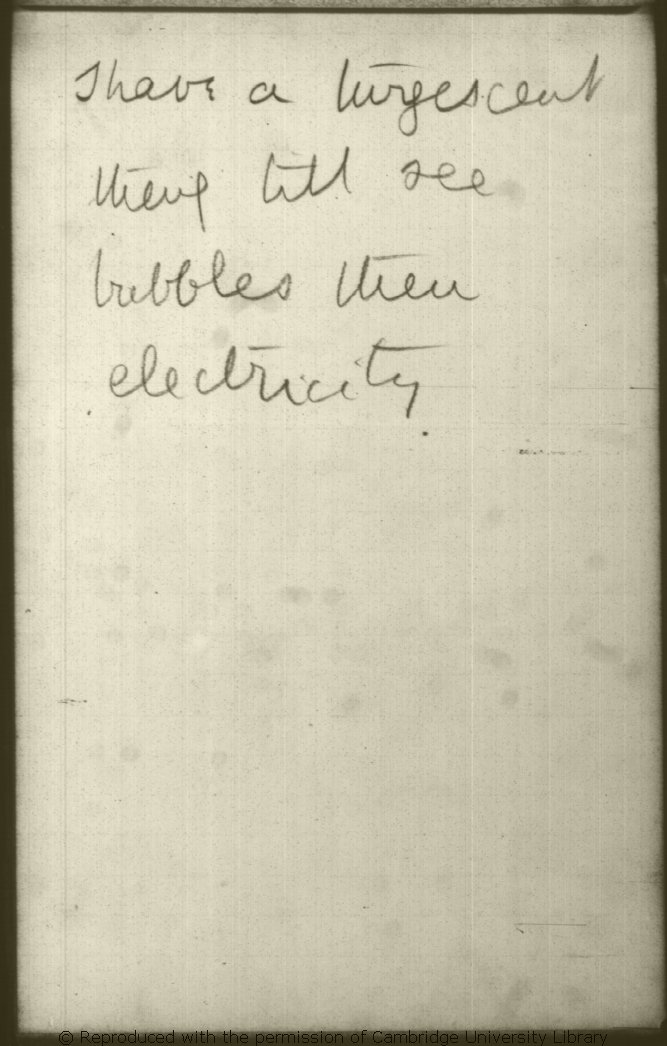 Shave a turgescent
thing till see
bubbles then
electricity.
© Reproduced with the permission of Cambridge University Library